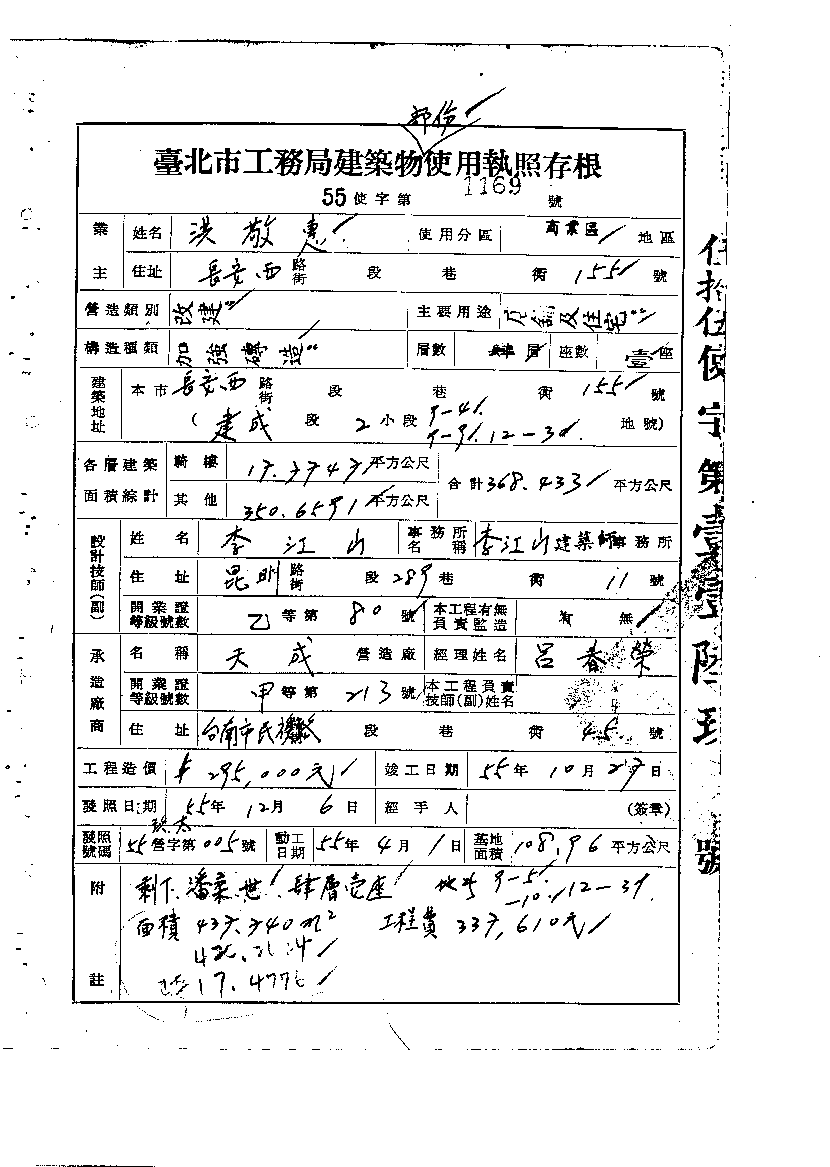 部份
臺北市工務局建築物使用執照存根
55使字第1169號
業主 姓名 洪敬惠 使用分區 商業區 地區
住址 長安西 路街 段 巷 衖 155 號
營造類別 改建 主要用途 及住宅
構造種類 加強磚造 層數 層 座數 壹座
建築地址 本市 長安西 路街 段 巷 衖 155 號
(建成段 2小段 9-4 地號)
9-9 12-3
各層建築面積綜計 騎樓 17.7743 平方公尺 合計 368.433 平方公尺
其他 350.6591 平方公尺
設計技師(副) 姓名 李江山 事務所名稱 李江山建築師事務所
住址 昆明 路街 段 289 巷 衖 11 號
開業證等級號數 乙等第80號 本工程有無負責監造 有 無
承造廠商 名稱 天成 營造廠 經理姓名 呂春榮
開業證等級號數 甲等第213號 本工程負責技師(副)姓名
住址 台南市民權路 段 巷 衖 45 號
工程造價 295,000元 竣工日期 55年10月27日
發照日期 55年12月6日 經手人 (簽章)
發照號碼 55營字第005號 動工日期 55年4月1日 基地面積 108.96 平方公尺
附註 剩下潘 世 肆層壹座 地号 9-5
-10, 12-3
面積 437.740m² 工程費 337,610元
17.4776
伍拾伍使字第壹壹陸玖號